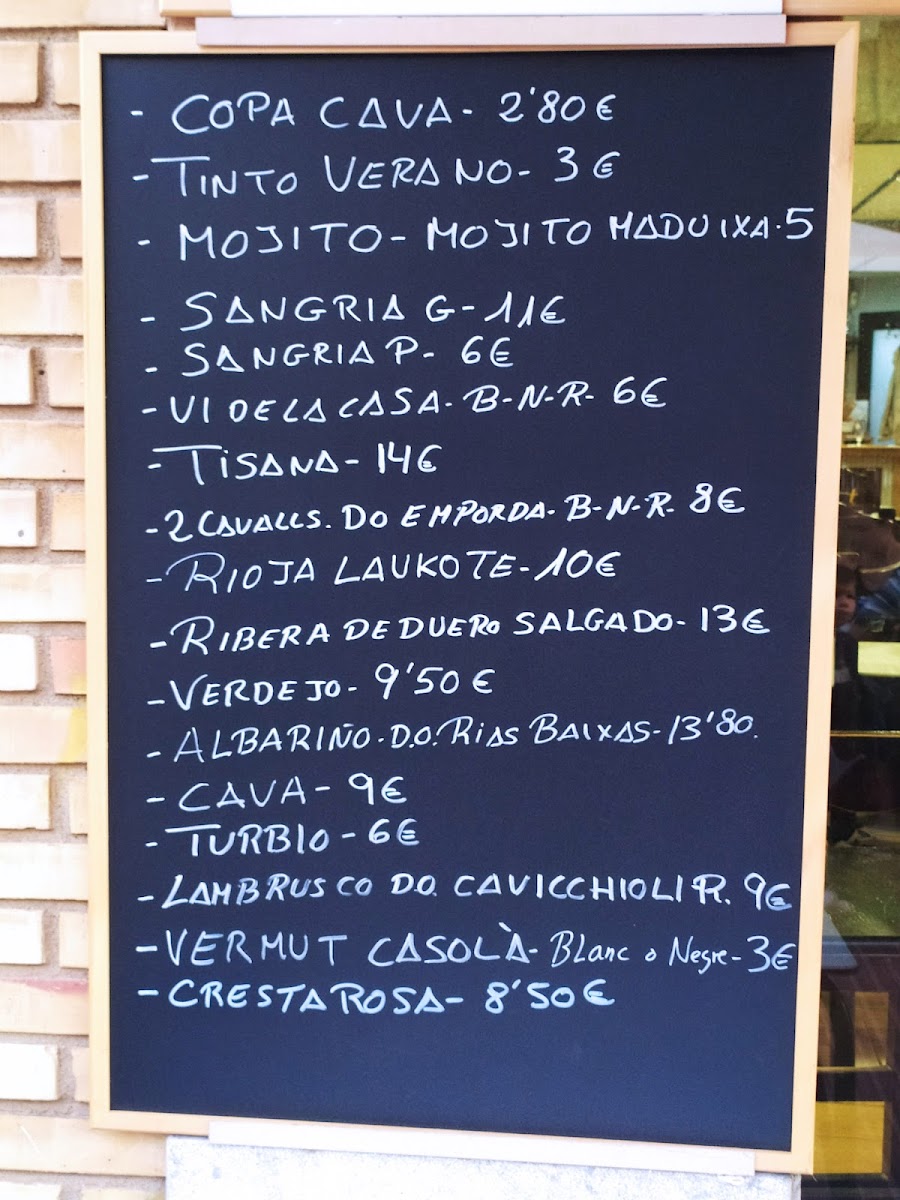 - COPA CAVA - 2'80 €
- TINTO VERANO - 3 €
- MOJITO - MOJITO MADUIXA · 5
- SANGRIA G - 11€
- SANGRIA P - 6€
- VI DE LA CASA - B-N-R- 6€
- TISANA - 14€
- 2 CAVALLS. DO EMPORDA - B-N-R- 8€
- RIOJA LAUKOTE - 10€
- RIBERA DE DUERO SALGADO - 13€
- VERDEJO - 9'50 €
- ALBARIÑO - D.O. RIAS BAIXAS - 13'80.
- CAVA - 9€
- TURBIO - 6€
- LAMBRUSCO D.O. CAVICCHIOLI R. 9€
- VERMUT CASOLÀ - Blanc o Negre - 3€
- CRESTA ROSA - 8'50€